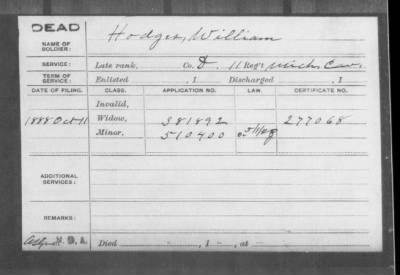 DEAD
NAME OF SOLDIER: Hodges, William
SERVICE: Late rank, Co. D, 11 Reg't Mich. Cav.
TERM OF SERVICE: Enlisted , 1 Discharged , 1
DATE OF FILING. CLASS. APPLICATION NO. LAW. CERTIFICATE NO.
Invalid,
1888 Oct 11 Widow, 381892 277068
Minor, 510400
ADDITIONAL SERVICES:
REMARKS:
Died , 1 , at